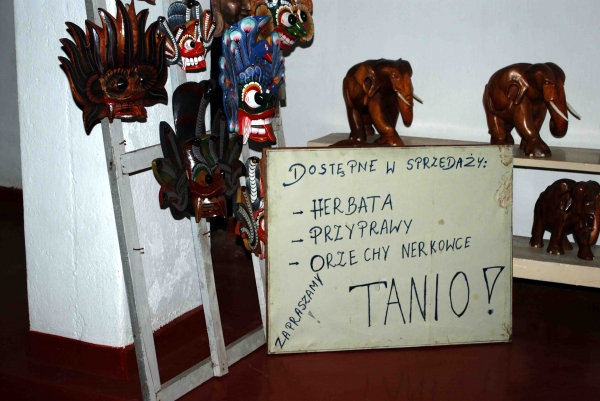 DOSTĘPNE W SPRZEDAŻY:
- HERBATA
- PRZYPRAWY
- ORZECHY NERKOWCE
ZAPRASZAMY!
TANIO!